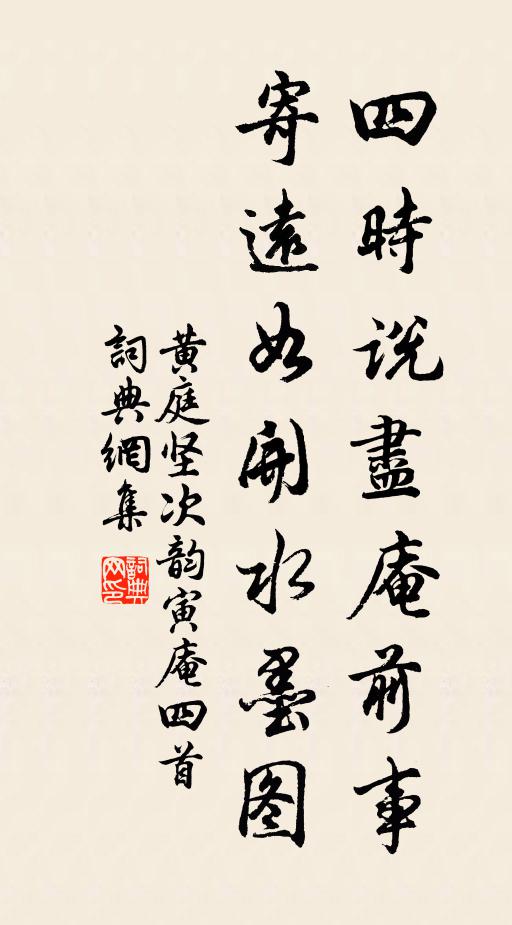 四時説盡庵前事
寄遠如開水墨图
黄庭坚次韵寅庵四首
詞典網集
詞典网印